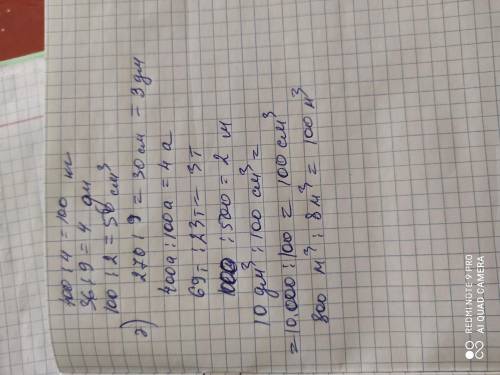 400 : 4 = 100 кг
36 : 9 = 4 дм
100 : 2 = 50 см³
2) 270 : 9 = 30 см = 3 дм
400а : 100а = 4 а
69т : 23т = 3т
1000 : 500 = 2 м
10 дм³ : 100 см³ =
= 10.000 : 100 = 100 см³
800 м³ : 8 м³ = 100 м³
REDMI NOTE 9 PRO
AI QUAD CAMERA